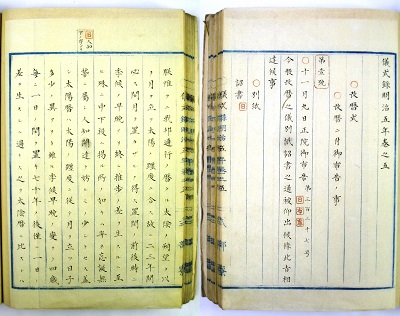 儀式録明治五年巻之五
○改暦式
○改暦ニ付御布告ノ事
第壹號
○十一月九日正院御布告 第三百三十七号
今般改暦之儀別紙詔書之通被仰出候條此旨相
達候事
○別紙
詔書
朕惟フニ我邦通行ノ暦タル太陰ノ朔望ヲ以
テ月ヲ立テ太陽ノ躔度ニ合ス故ニ二三年間
必ス閏月ヲ置カサルヲ得ス置閏ノ前後時ニ
季候ノ早晩アリ終ニ推歩ノ差ヲ生スルニ至
ル殊ニ中下段ニ掲ル所ノ如キハ率子妄誕無
稽ニ屬シ人知ノ開達ヲ妨ルモノ少シトセス蓋
シ太陽暦ハ太陽ノ躔度ニ從テ月ヲ立ツ日子
多少ノ異アリト雖モ季候早晩ノ變ナク四歳
毎ニ一日ノ閏ヲ置キ七千年ノ後僅ニ一日ノ
差ヲ生スルニ過キス之ヲ太陰暦ニ比スレハ